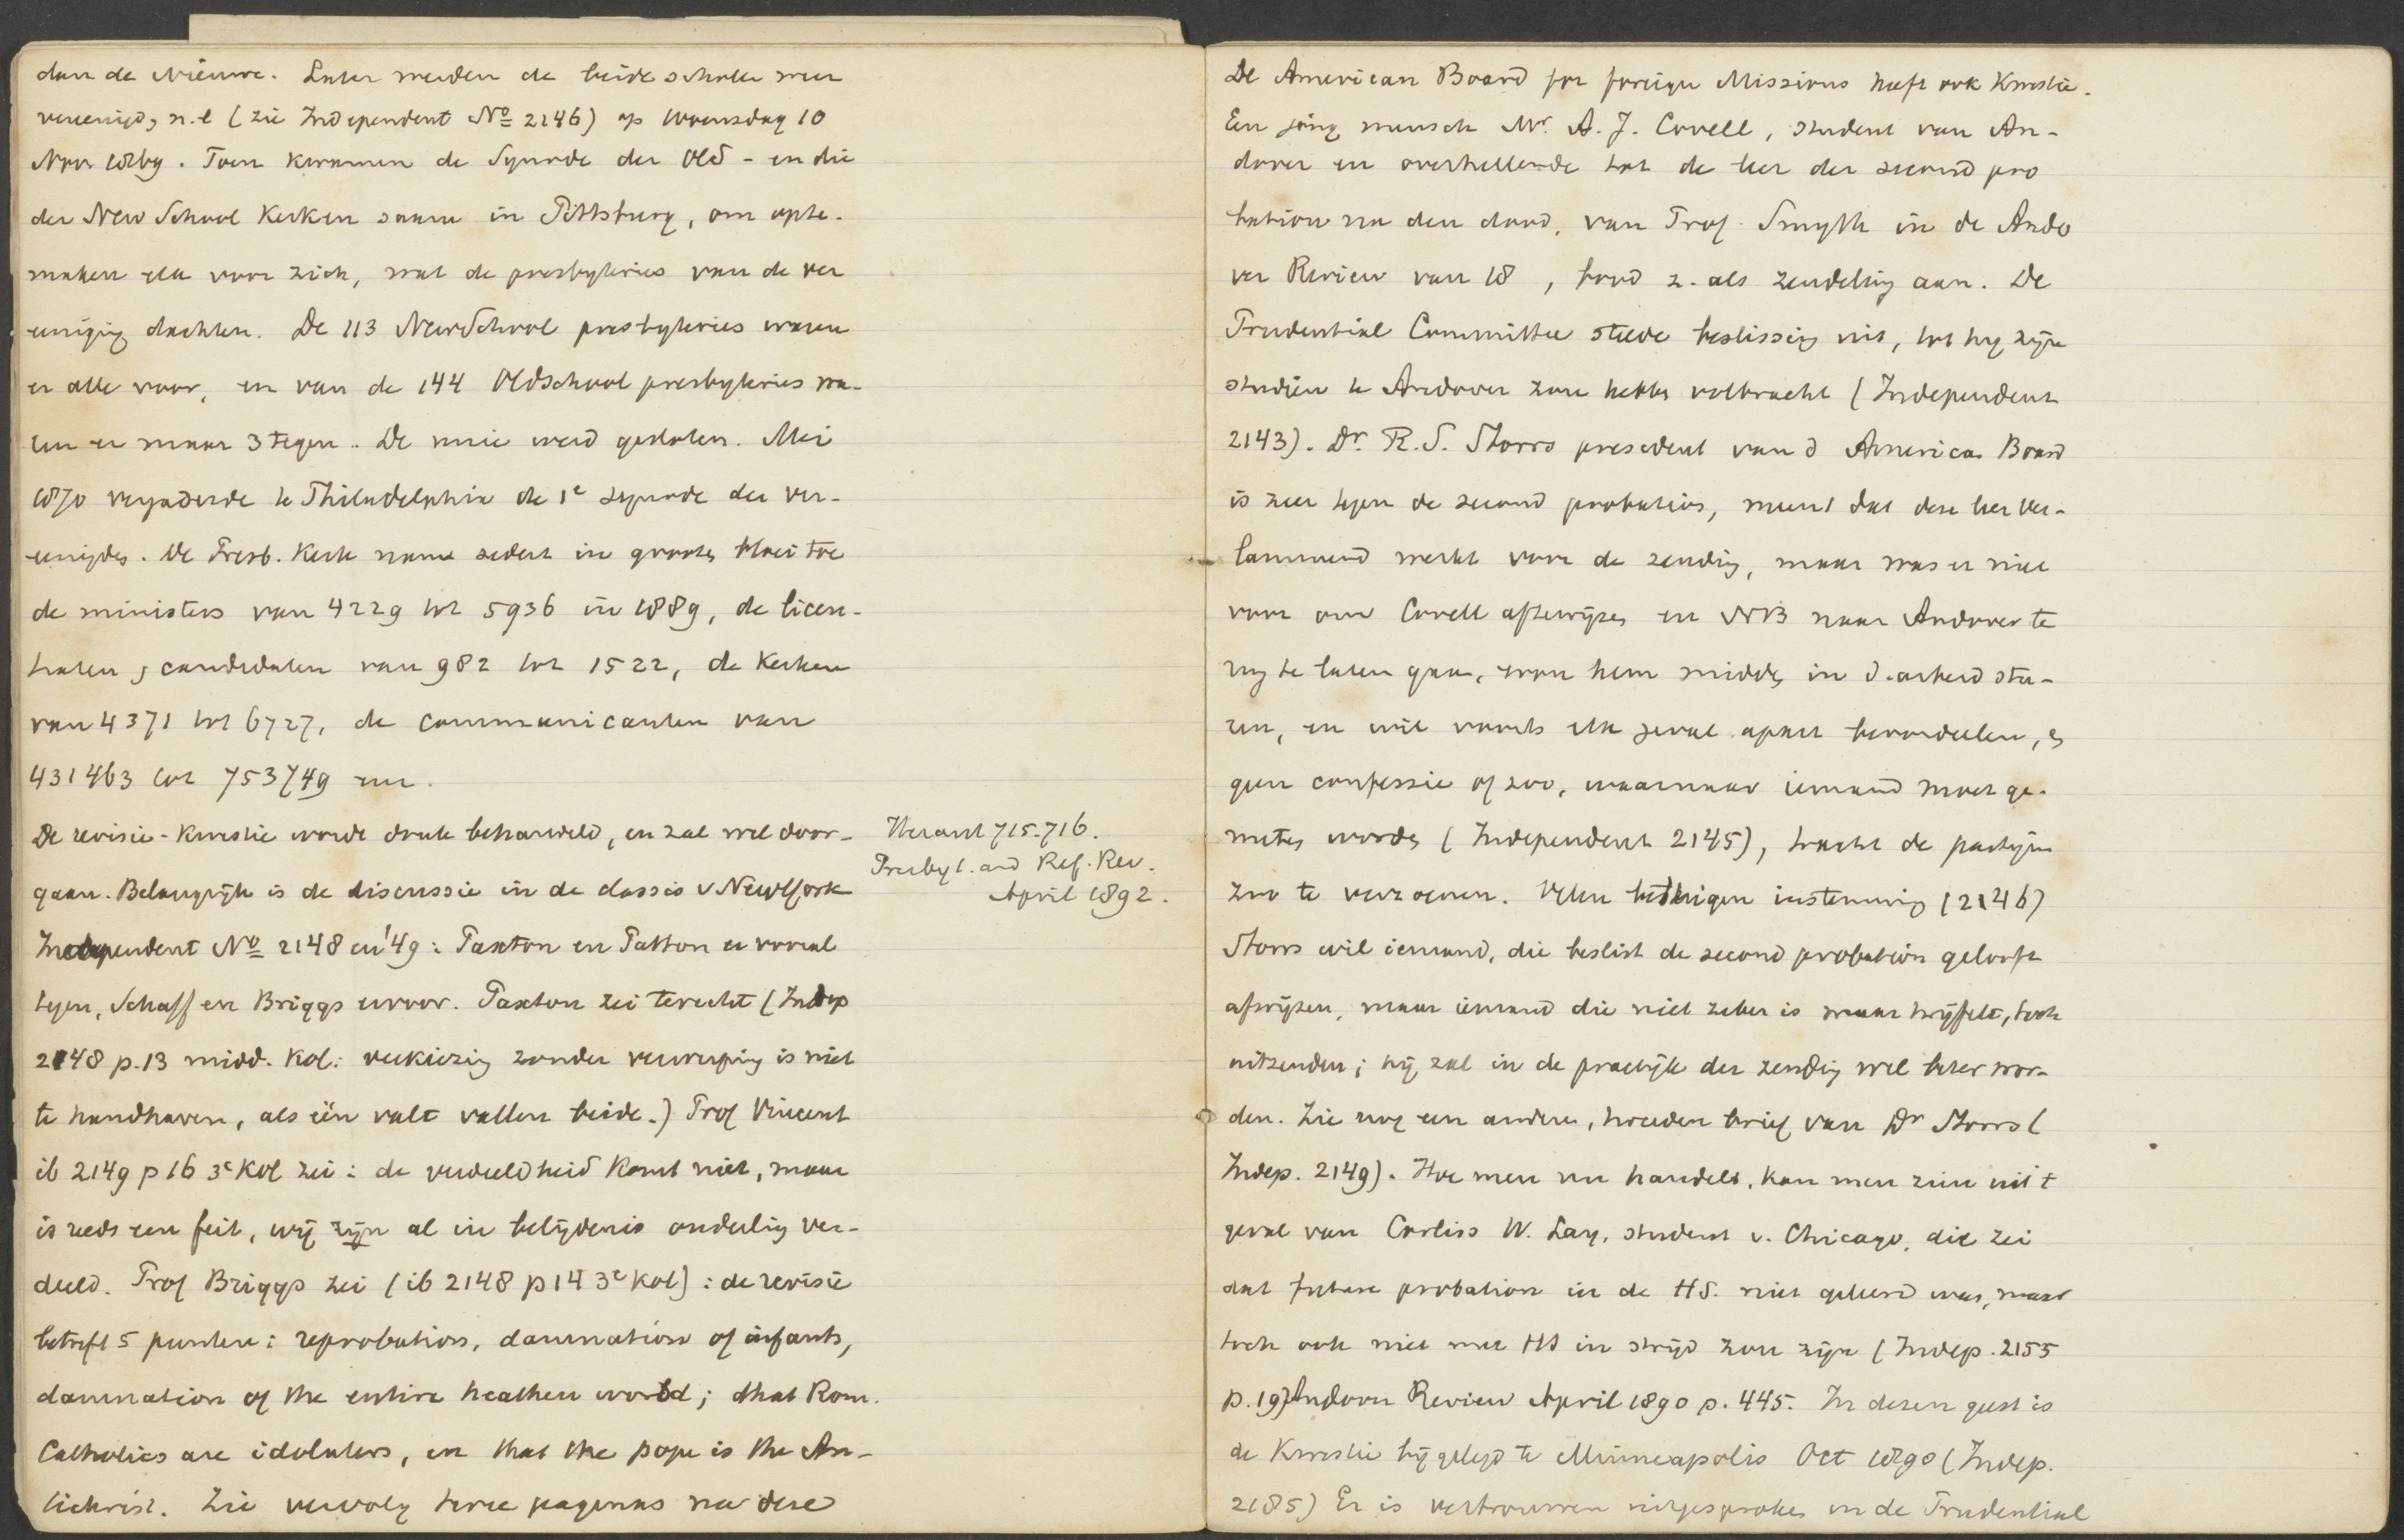 dan de Nieuwe. Later werden de beide scholen weer
vereenigd, n.l (zie Independent No 2146) op Woensdag 10
Nov 1869. Toen kwamen de Synode der Old - en die
der New School Kerken saam in Pittsburg, om opte-
maken elk voor zich, wat de presbyteries van de ver
eeniging dachten. De 113 NewSchool presbyteries waren
er alle voor, en van de 144 OldSchool presbyteries wa-
ren er maar 3 tegen. De unie werd gesloten. Mei
1870 vergaderde te Philadelphia de 1e synode der ver-
eenigden. De Presb. Kerk nam sedert in grooten bloei toe
de ministers van 4229 tot 5936 in 1889, de licen-
tiaten, candidaten van 982 tot 1522, de Kerken
van 4371 tot 6727, de communicanten van
431463 tot 753749 enz.
De revisie-kwestie wordt druk behandeld, en zal wel door-
gaan. Belangrijk is de discussie in de classis v New York
Independent No 2148 en '49: Paxton en Patton er vooral
tegen, Schaff en Briggs ervoor. Paxton zei terecht (Indep
2148 p.13 midd. Kol: verkiezing zonder verwerping is niet
te handhaven, als één valt vallen beide.) Prof Vincent
ib 2149 p 16 3e Kol zei: de verdeeldheid komt niet, maar
is reeds een feit, wij zijn al in belijdenis onderling ver-
deeld. Prof Briggs zei (ib 2148 p 14 3e Kol): de revisie
betreft 5 punten: reprobation, damnation of infants,
damnation of the entire heathen world; that Rom.
Catholics are idolaters, en that the pope is the An-
tichrist. Zie vervolg twee paginas na deze
Heraut 715-716.
Presbyt. and Ref. Rev.
April 1892.
De American Board for foreign Missions heeft ook kwestie.
Een jong mensch Mr. A. J. Covell, student van An-
dover en overhellende tot de leer der second pro
bation na den dood, van Prof. Smyth in de Ando
ver Review van 18 , bood z. als zendeling aan. De
Prudential Committee stelde beslissing uit, tot hij zijn
studien te Andover zou hebben volbracht (Independent
2143). Dr. R. S. Storrs president van d American Board
is zeer tegen de second probation, meent dat deze leer ver-
lammend werkt voor de zending, maar was er niet
voor om Covell aftewijzen en NB naar Andover te
rug te laten gaan, wou hem midden in d. arbeid stu-
ren, en wil voorts elk geval apart beoordeelen, en
geen confessie of zoo, waarnaar iemand moet ge-
meten worden (Independent 2145), tracht de partijen
zoo te verzoenen. Velen betuigen instemming (2146)
Storrs wil iemand, die beslist de second probation gelooft
afwijzen, maar iemand die niet zeker is maar twijfelt, toch
uitzenden; hij zal in de practijk der zending wel beter wor-
den. Zie nog een andere, breeden brief van Dr Storrs (
Indep. 2149). Hoe men nu handelt, kan men zien uit t
geval van Corliss W. Lay, student v. Chicago, die zei
dat future probation in de HS. niet geleerd was, maar
toch ook niet met HS in strijd zou zijn (Indep. 2155
p. 19) Andover Review April 1890 p. 445. In dezen geest is
de Kwestie bijgelegd te Minneapolis Oct 1890 (Indep.
2185) Er is vertrouwen uitgesproken in de Prudential